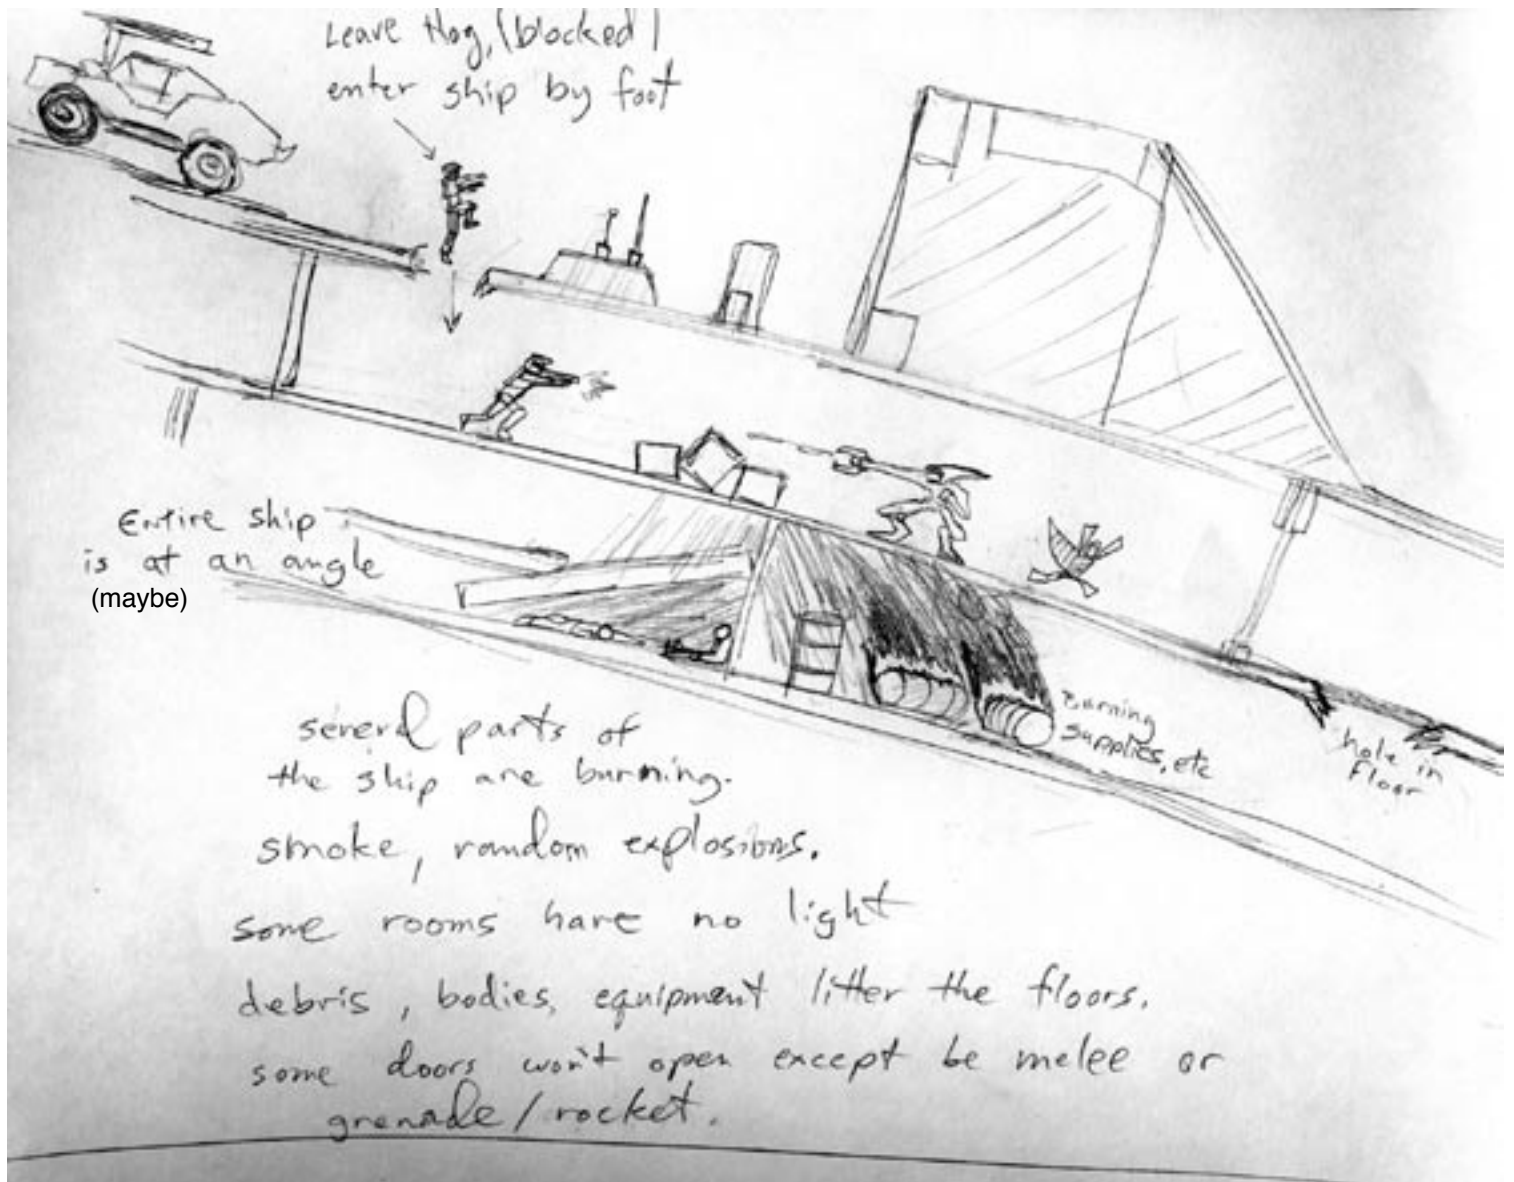 Leave Hog, (blocked)
enter ship by foot
Entire ship
is at an angle
(maybe)
Burning
supplies, etc
hole in
floor
several parts of
the ship are burning.
smoke, random explosions.
some rooms have no light
debris, bodies, equipment litter the floors.
some doors won't open except be melee or
grenade/rocket.